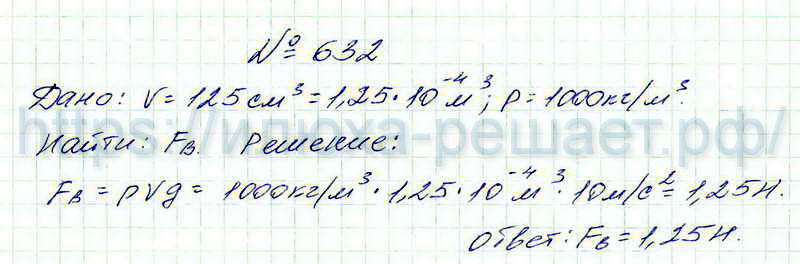 № 632
Дано: V = 125 см³ = 1,25 · 10⁻⁴ м³; ρ = 1000 кг/м³.
https://илюха-решает.рф/
Найти: Fв. Решение:
Fв = ρVg = 1000 кг/м³ · 1,25 · 10⁻⁴ м³ · 10 м/с² = 1,25 Н.
Ответ: Fв = 1,25 Н.